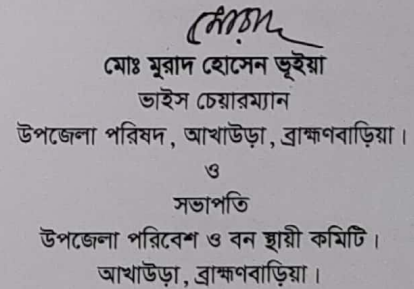 মোঃ মুরাদ হোসেন ভূইয়া
ভাইস চেয়ারম্যান
উপজেলা পরিষদ, আখাউড়া, ব্রাহ্মণবাড়িয়া।
ও
সভাপতি
উপজেলা পরিবেশ ও বন স্থায়ী কমিটি।
আখাউড়া, ব্রাহ্মণবাড়িয়া।